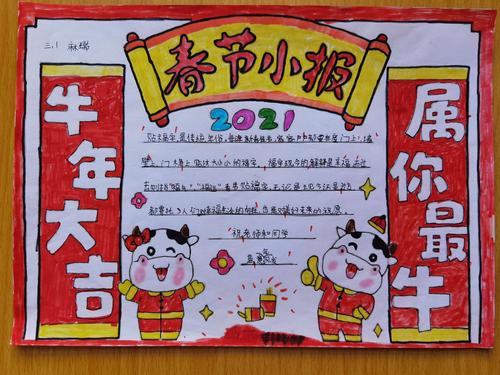 三.1
春节小报
2021
牛年大吉
属你最牛
贴福字,是传统年俗。每逢新春佳节,家家户户都要在屋门上、墙
壁上、门楣上贴上大大小小的福字。福字现在的解释是幸福,而在
过去则指"福气"、"福运"春节贴福字,无论是现在还是过去,
都寄托了人们对幸福生活的向往,也是对美好未来的祝愿。
祝老师和同学